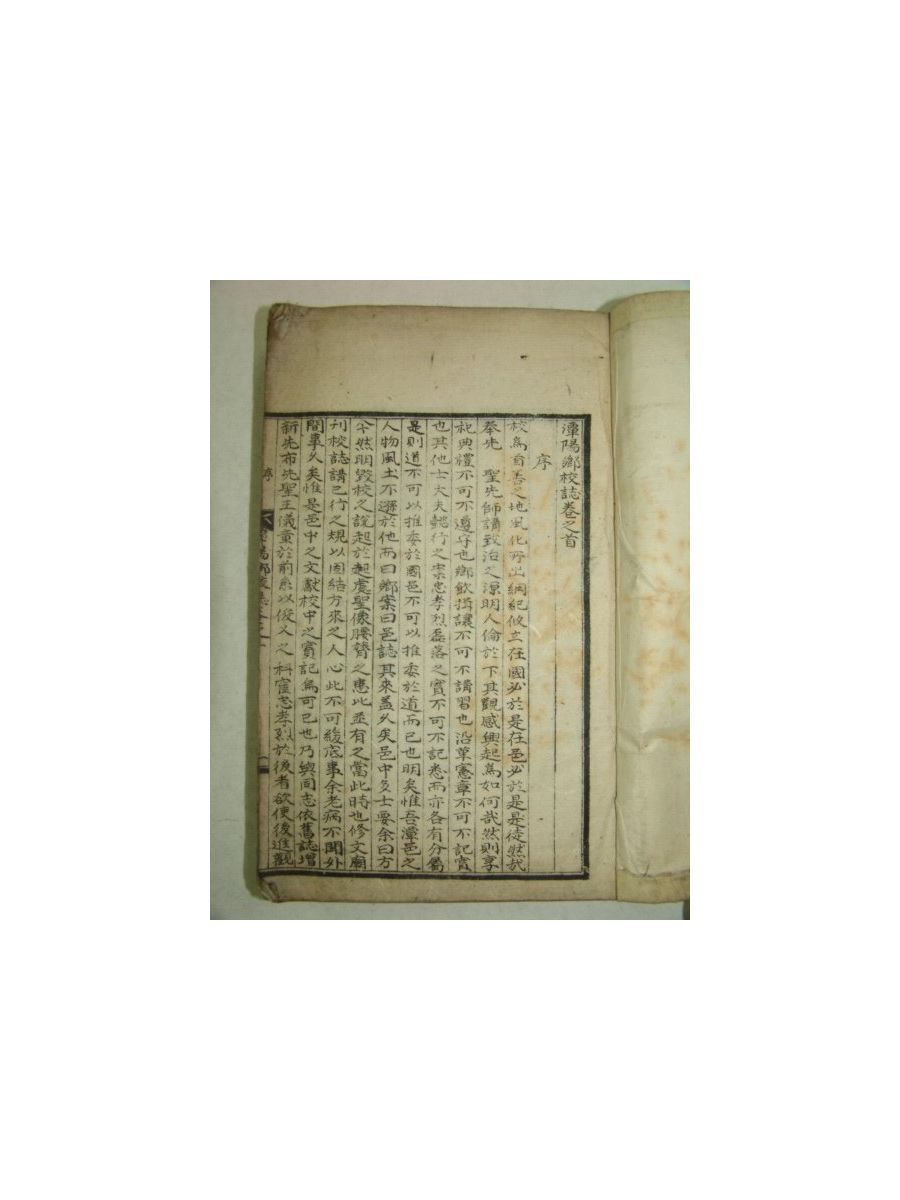 潭陽鄕校誌卷之首
序
校爲首善之地風化所出綱紀攸立在國必於是在邑必於是是徒然哉
奉先 聖先師講致治之源明人倫於下其觀感興起爲如何哉然則享
祀典禮不可不遵守也鄕飮揖讓不可不講習也沿革憲章不可不記實
也其他士大夫懿行之案忠孝烈磊落之實不可不記悉而亦各有分屬
是則道不可以推委於國邑不可以推委於道而已也明矣惟吾潭邑之
人物風土不遜於他而曰鄕案曰邑誌其來盖久矣邑中多士要余曰方
今然明毁校之說起於起處聖像腰膂之患比並有之當此時也修文廟
刊校誌講已行之規以固結方來之人心此不可緩底事余老病不聞外
間事久矣惟是邑中之文獻校中之實記烏可已也乃與同志依舊誌增
新先布先聖王儀章於前系以俊乂之科宦忠孝烈於後者欲使後進觀
序